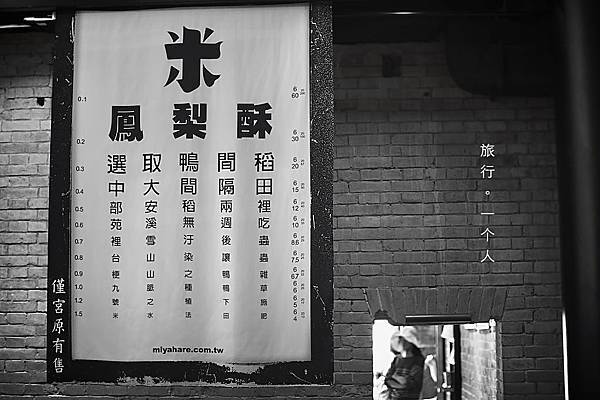 米
鳳梨酥
稻田裡吃蟲蟲雜草施肥
間隔兩週後讓鴨鴨下田
鴨間稻無汙染之種植法
取大安溪雪山山脈之水
選中部苑裡台梗九號米
0.1
0.2
0.3
0.4
0.5
0.6
0.7
0.8
0.9
1.0
1.2
1.5
6
60
6
30
6
20
6
15
6
12
6
10
6
8.6
6
7.5
6
6.7
6
6
6
5
6
4
miyahare.com.tw
僅宮原有售
旅行。一个人